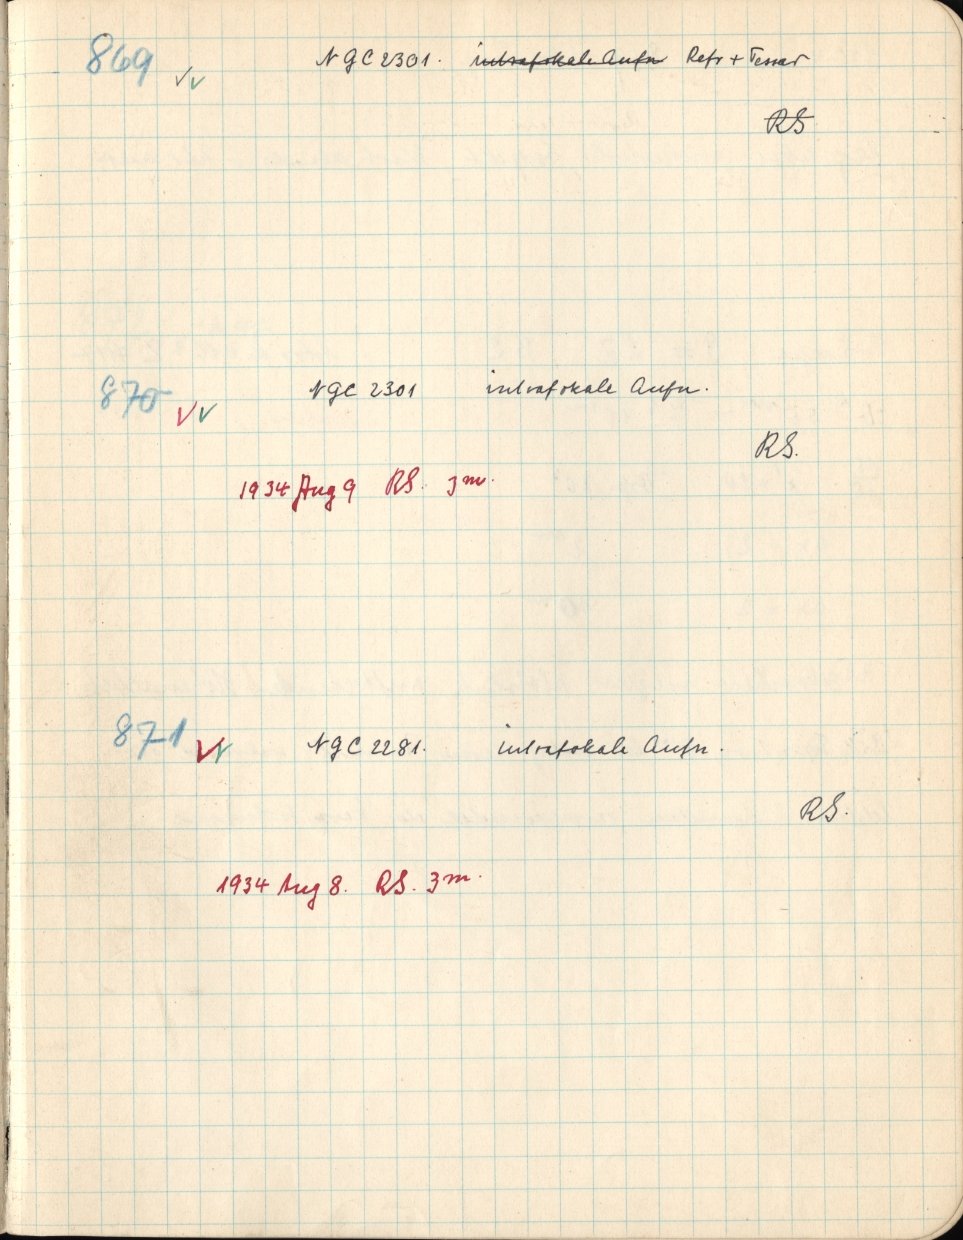 869 ✓✓ NGC 2301. intrafokale Aufn Refr + Tessar
RS
870 ✓✓ NGC 2301 intrafokale Aufn.
RS.
1934 Aug 9 RS. 3m.
871 ✓✓ NGC 2281. intrafokale Aufn.
RS.
1934 Aug 8. RS. 3m.